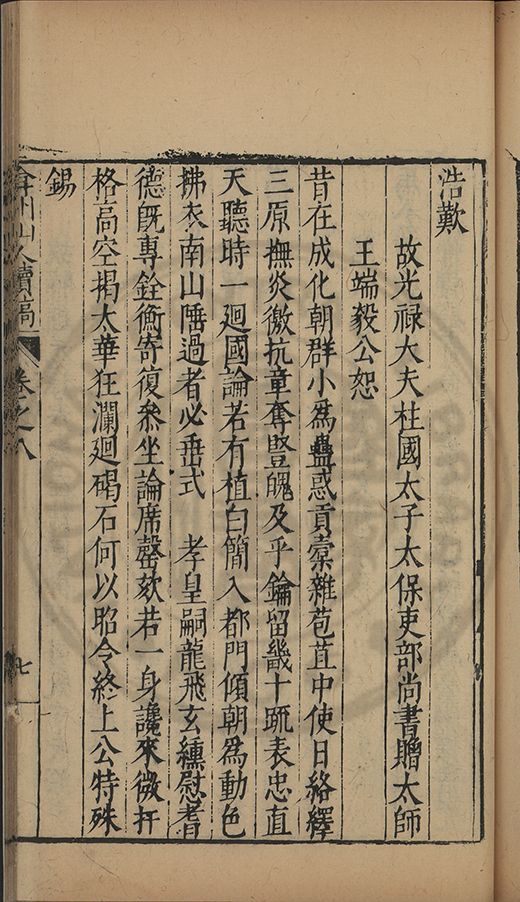 浩歎
故光祿大夫柱國太子太保吏部尚書贈太師
王端毅公恕
昔在成化朝群小為蠱惑貢橐雜苞苴中使日絡繹
三原撫炎徼抗章奪豎魄及乎鑰留畿十疏表忠直
天聽時一廻國論若有植白簡入都門傾朝為動色
拂衣南山陲過者必垂式 孝皇嗣龍飛玄纁慰耆
德旣專銓衡寄復叅坐論席罄欬若一身讒來微扞
格高空揭太華狂瀾廻碣石何以昭令終上公特殊
錫
弇州山人續稿
卷之八
七